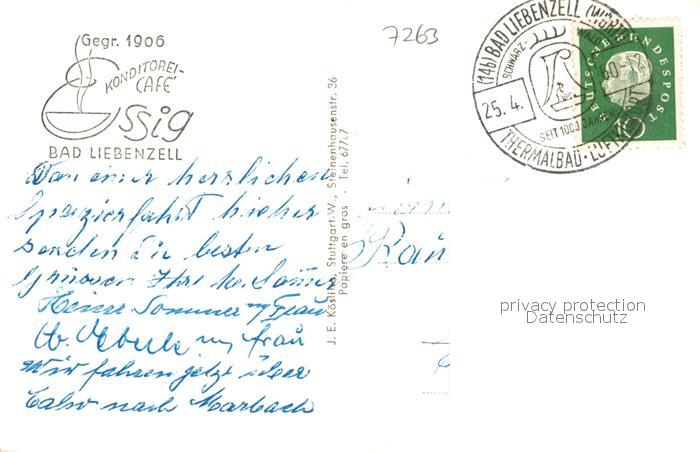 Gegr. 1906
KONDITOREI-
CAFE
Essig
BAD LIEBENZELL
7263
(14b) BAD LIEBENZELL (WÜRTT
SCHWARZ-
WALD
25.4.
60-12
SEIT 1000 JAHREN
THERMALBAD · LUFTK
DEUTSCHE BUNDESPOST
10
Von einer herrlichen
Spazierfahrt hieher
senden die besten
Grüssen Ihre
Heiner Sommer u Frau
u frau
Wir fahren jetzt über
Calw nach Marbach
J. E. Kösling, Stuttgart-W., Steinenhausenstr. 36
Papiere en gros · Tel. 67767
privacy protection
Datenschutz